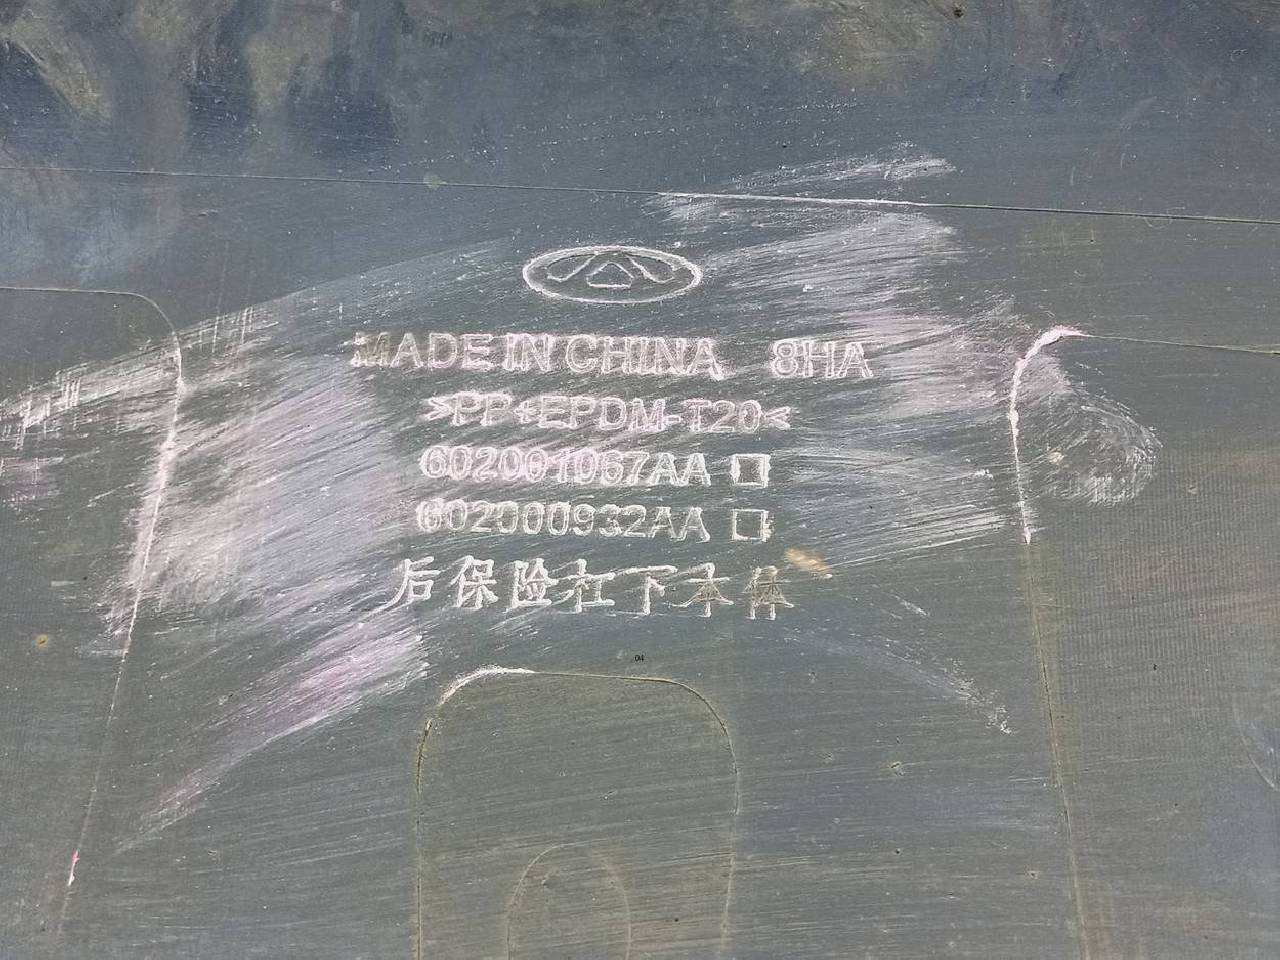 MADE IN CHINA 8HA
>PP+EPDM-T20<
602001067AA
602000932AA
后保险杠下本体
04